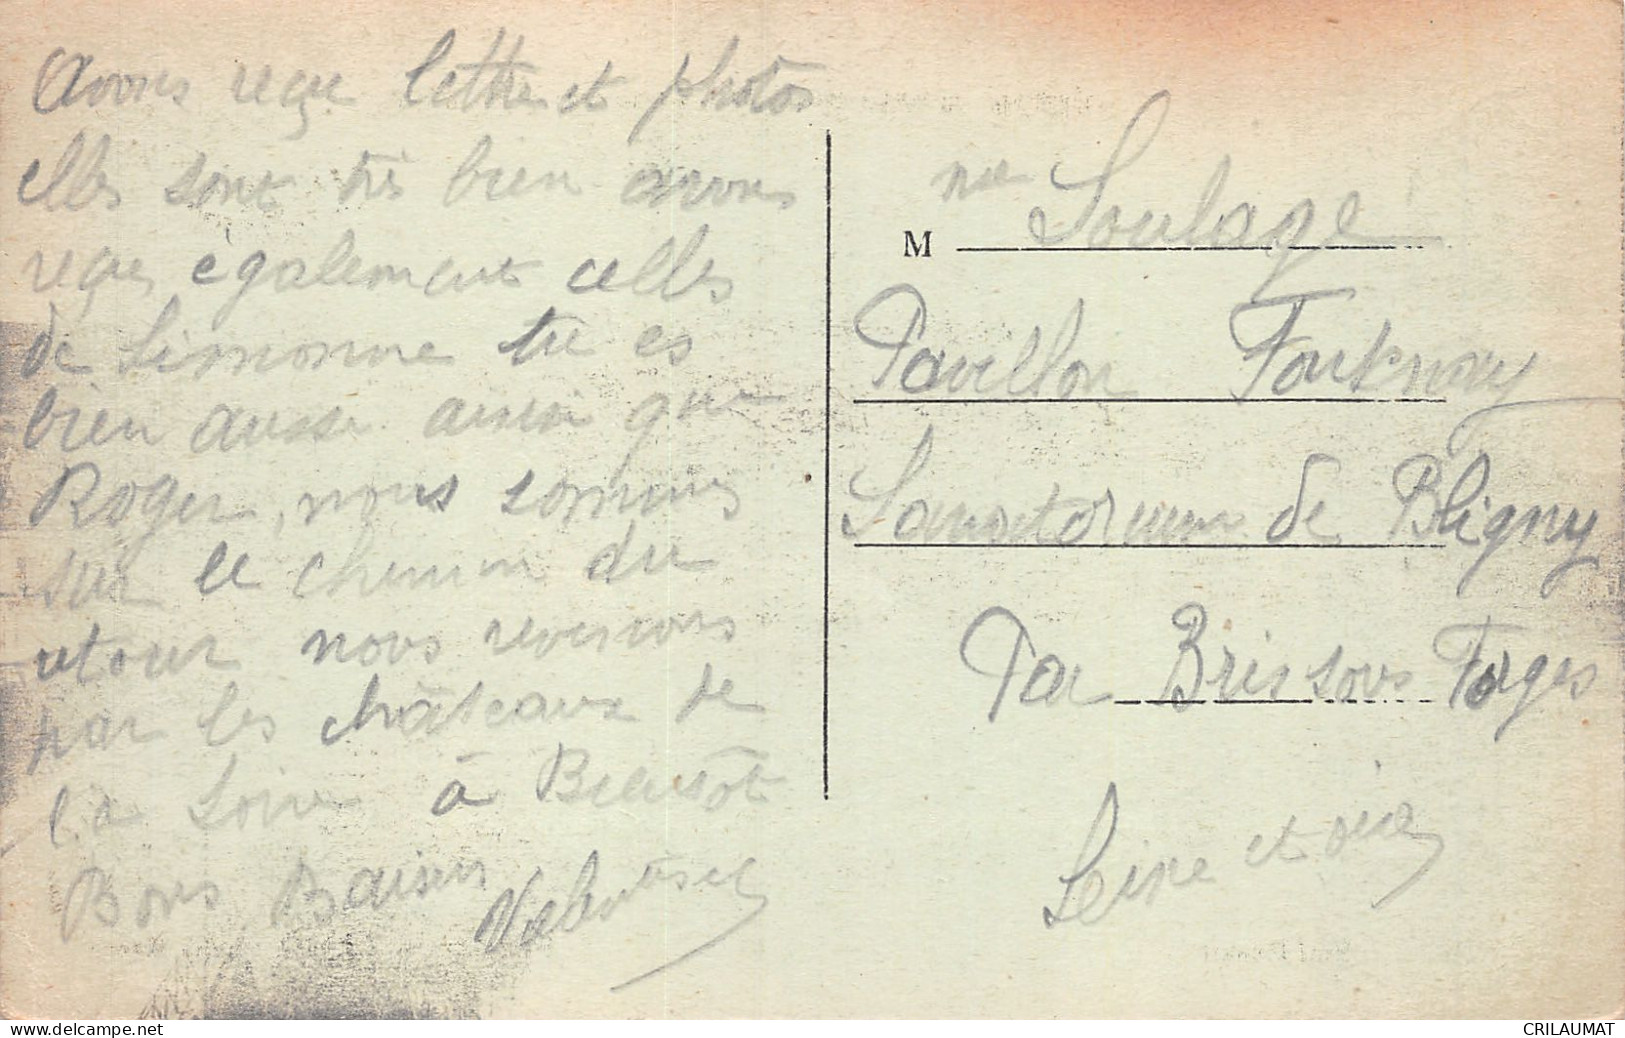 Avons reçu lettre et photos
elles sont très bien avons
reçu également celles
de Simonne tu es
bien aussi ainsi que
Roger, nous sommes
sur le chemin du
retour nous revenons
par les châteaux de
la Loire à Bientôt
Bons Baisers
M me Soulage
Pavillon
Sanatorium de Bligny
Par Bris sous Forges
Seine et oise
www.delcampe.net
CRILAUMAT